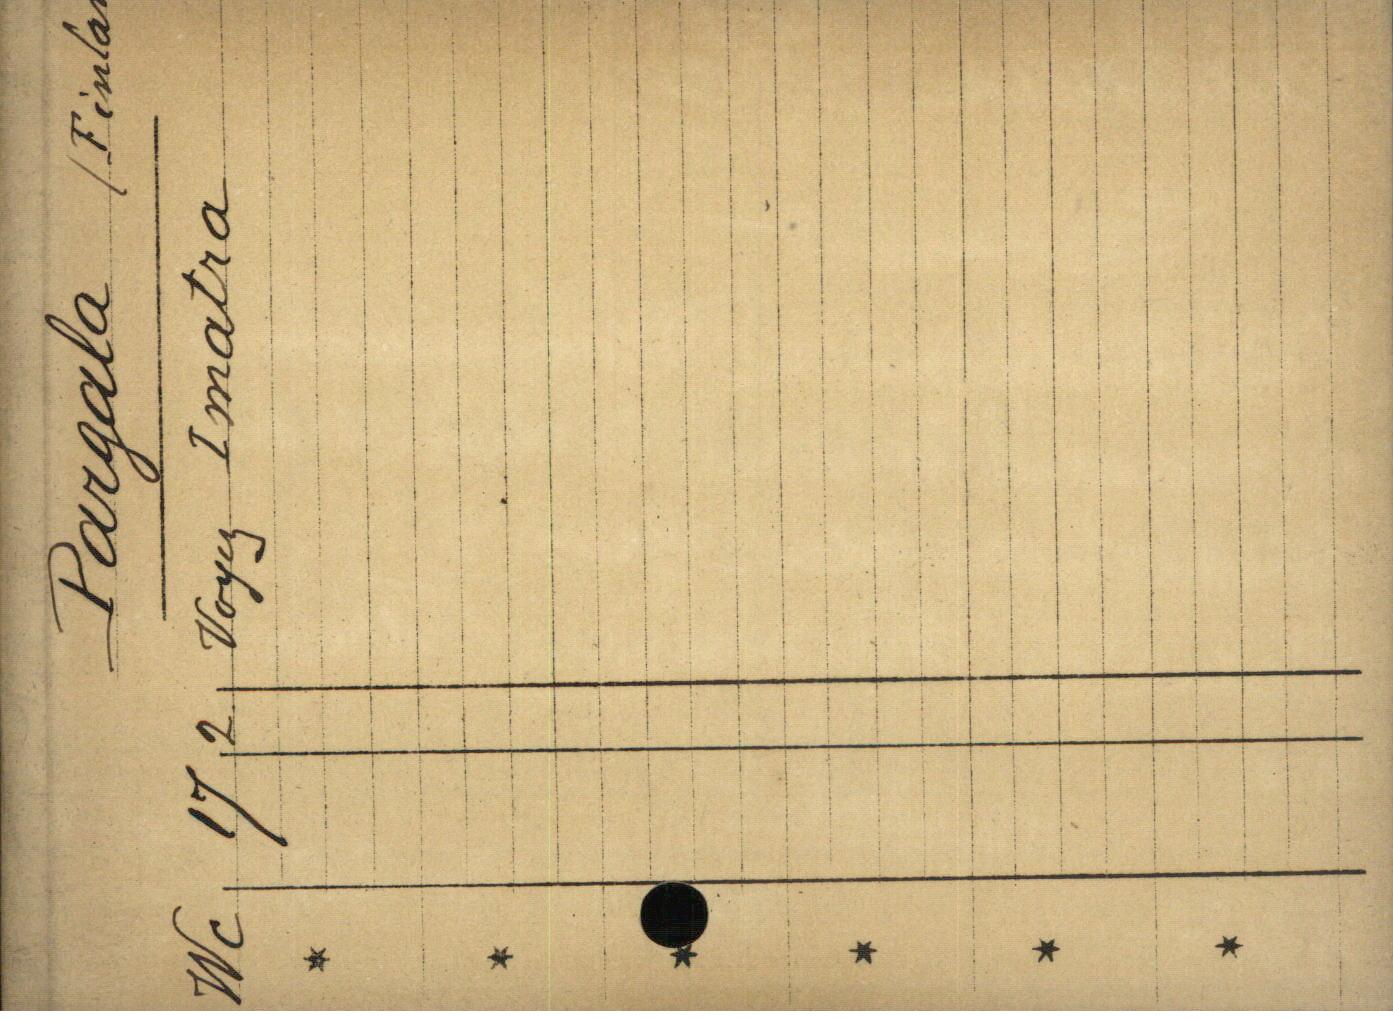 Pargala (Finlan
Wc 17 2 Voyez Imatra